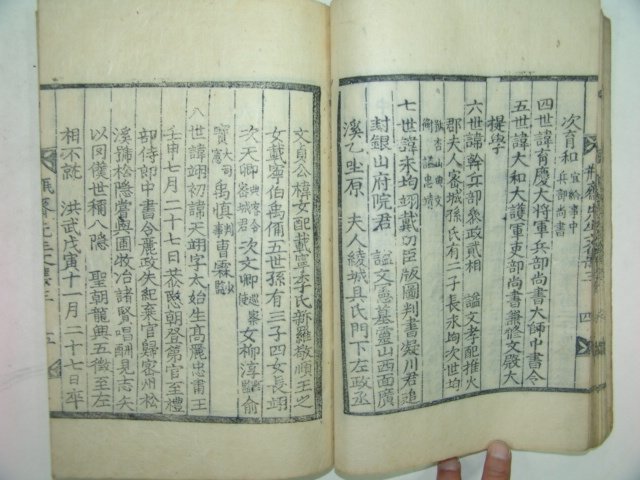 次育和 宣給事中 兵部尚書
四世諱育慶大將軍兵部尚書大師中書令
五世諱大和大護軍吏部尚書兼脩文殿大
提學
六世諱幹兵部叅政貳相 諡文孝配推火
郡夫人密城孫氏有二子長永均次世均
七世諱永均翊戴功臣版圖判書凝川君追
封銀山府院君 諡文憲墓靈山西面廣
溪乙坐原 夫人綾城具氏門下左政丞
文貞公禕女配載寧李氏新羅敬順王之
女載寧伯禹偁五世孫有三子四女長翊
次天卿 密城君 次文卿 女柳淳 俞
寶 大司憲 禹慎 判事 曹霖 監
八世諱翊初諱天翊字太始生高麗忠肅王
壬申七月二十七日恭愍朝登第官至禮
部侍郎中書令麗政失紀棄官歸密州松
溪號松隱嘗與圃牧冶諸賢唱酬見志矢
以罔僕世稱八隱 聖朝龍興五徵至左
相不就 洪武戊寅十一月二十七日卒
五